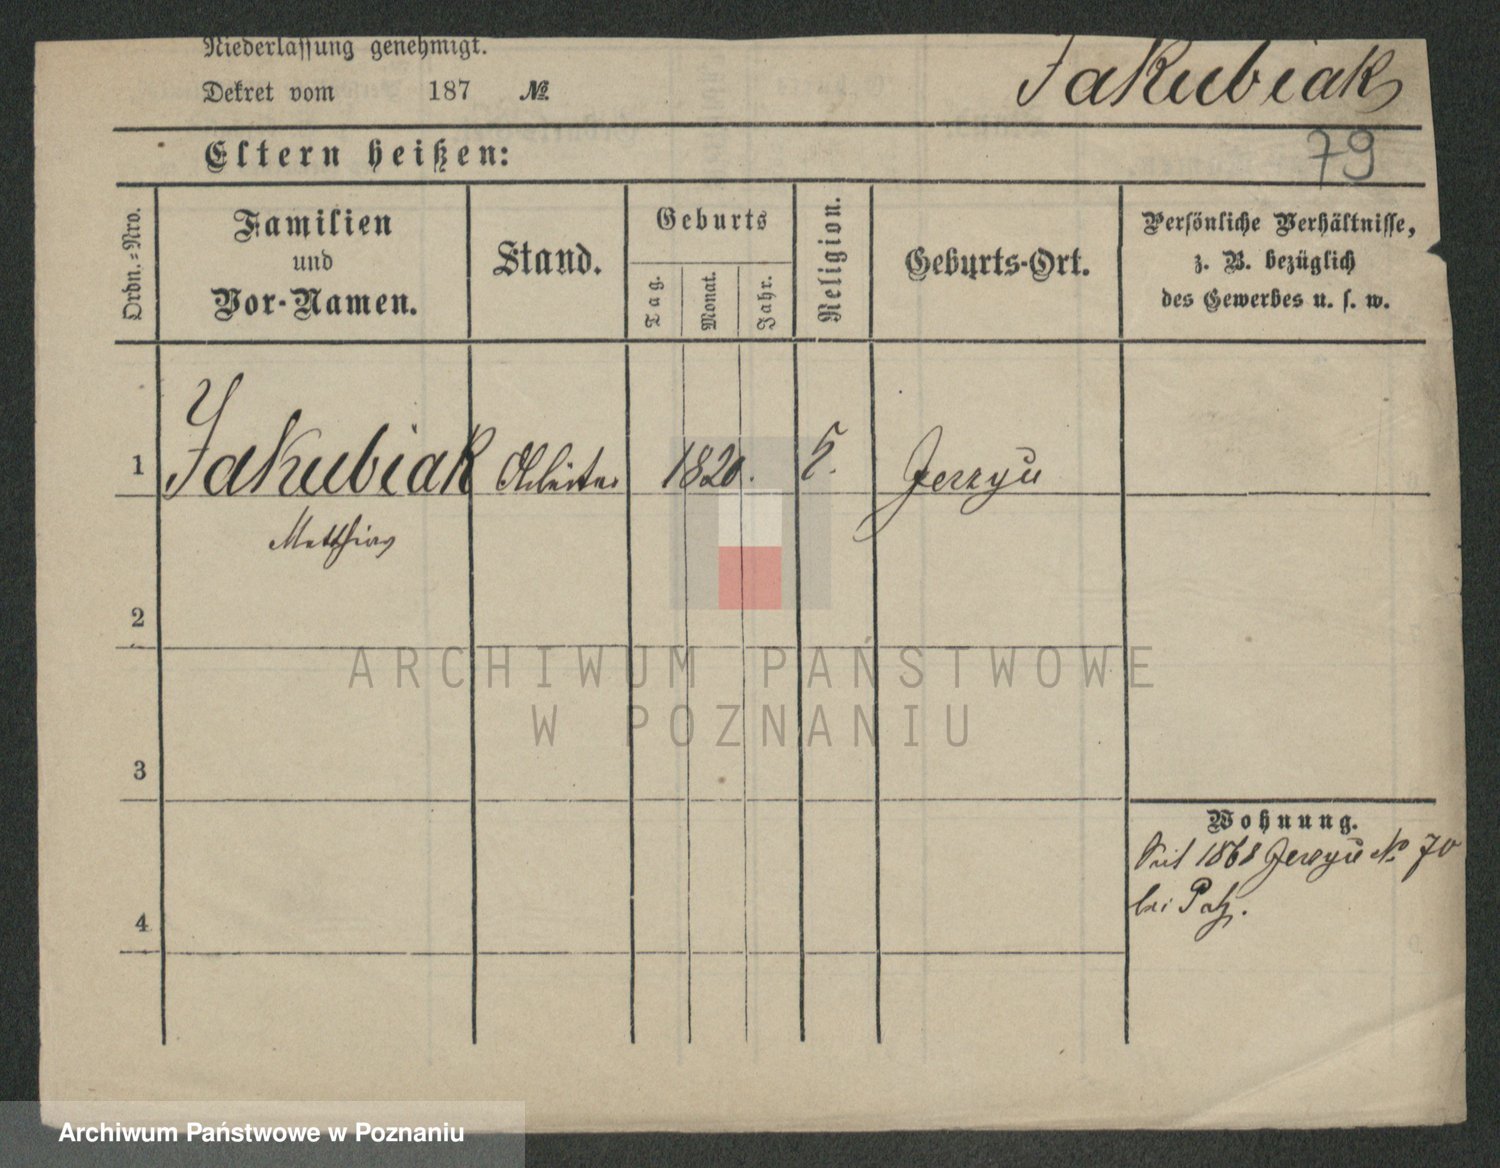 Niederlassung genehmigt.
Dekret vom 187 №
Jakubiak
79
Eltern heißen:
Ordn.=Nro.
Familien
und
Vor-Namen.
Stand.
Geburts
Tag.
Monat.
Jahr.
Religion.
Geburts-Ort.
Persönliche Verhältnisse,
z. B. bezüglich
des Gewerbes u. s. w.
1 Jakubiak Arbeiter 1820. Jerzyu
Matthias
2
3
4
Wohnung.
Seit 1868 Jerzyu № 70
bei
ARCHIWUM PAŃSTWOWE
W POZNANIU
Archiwum Państwowe w Poznaniu